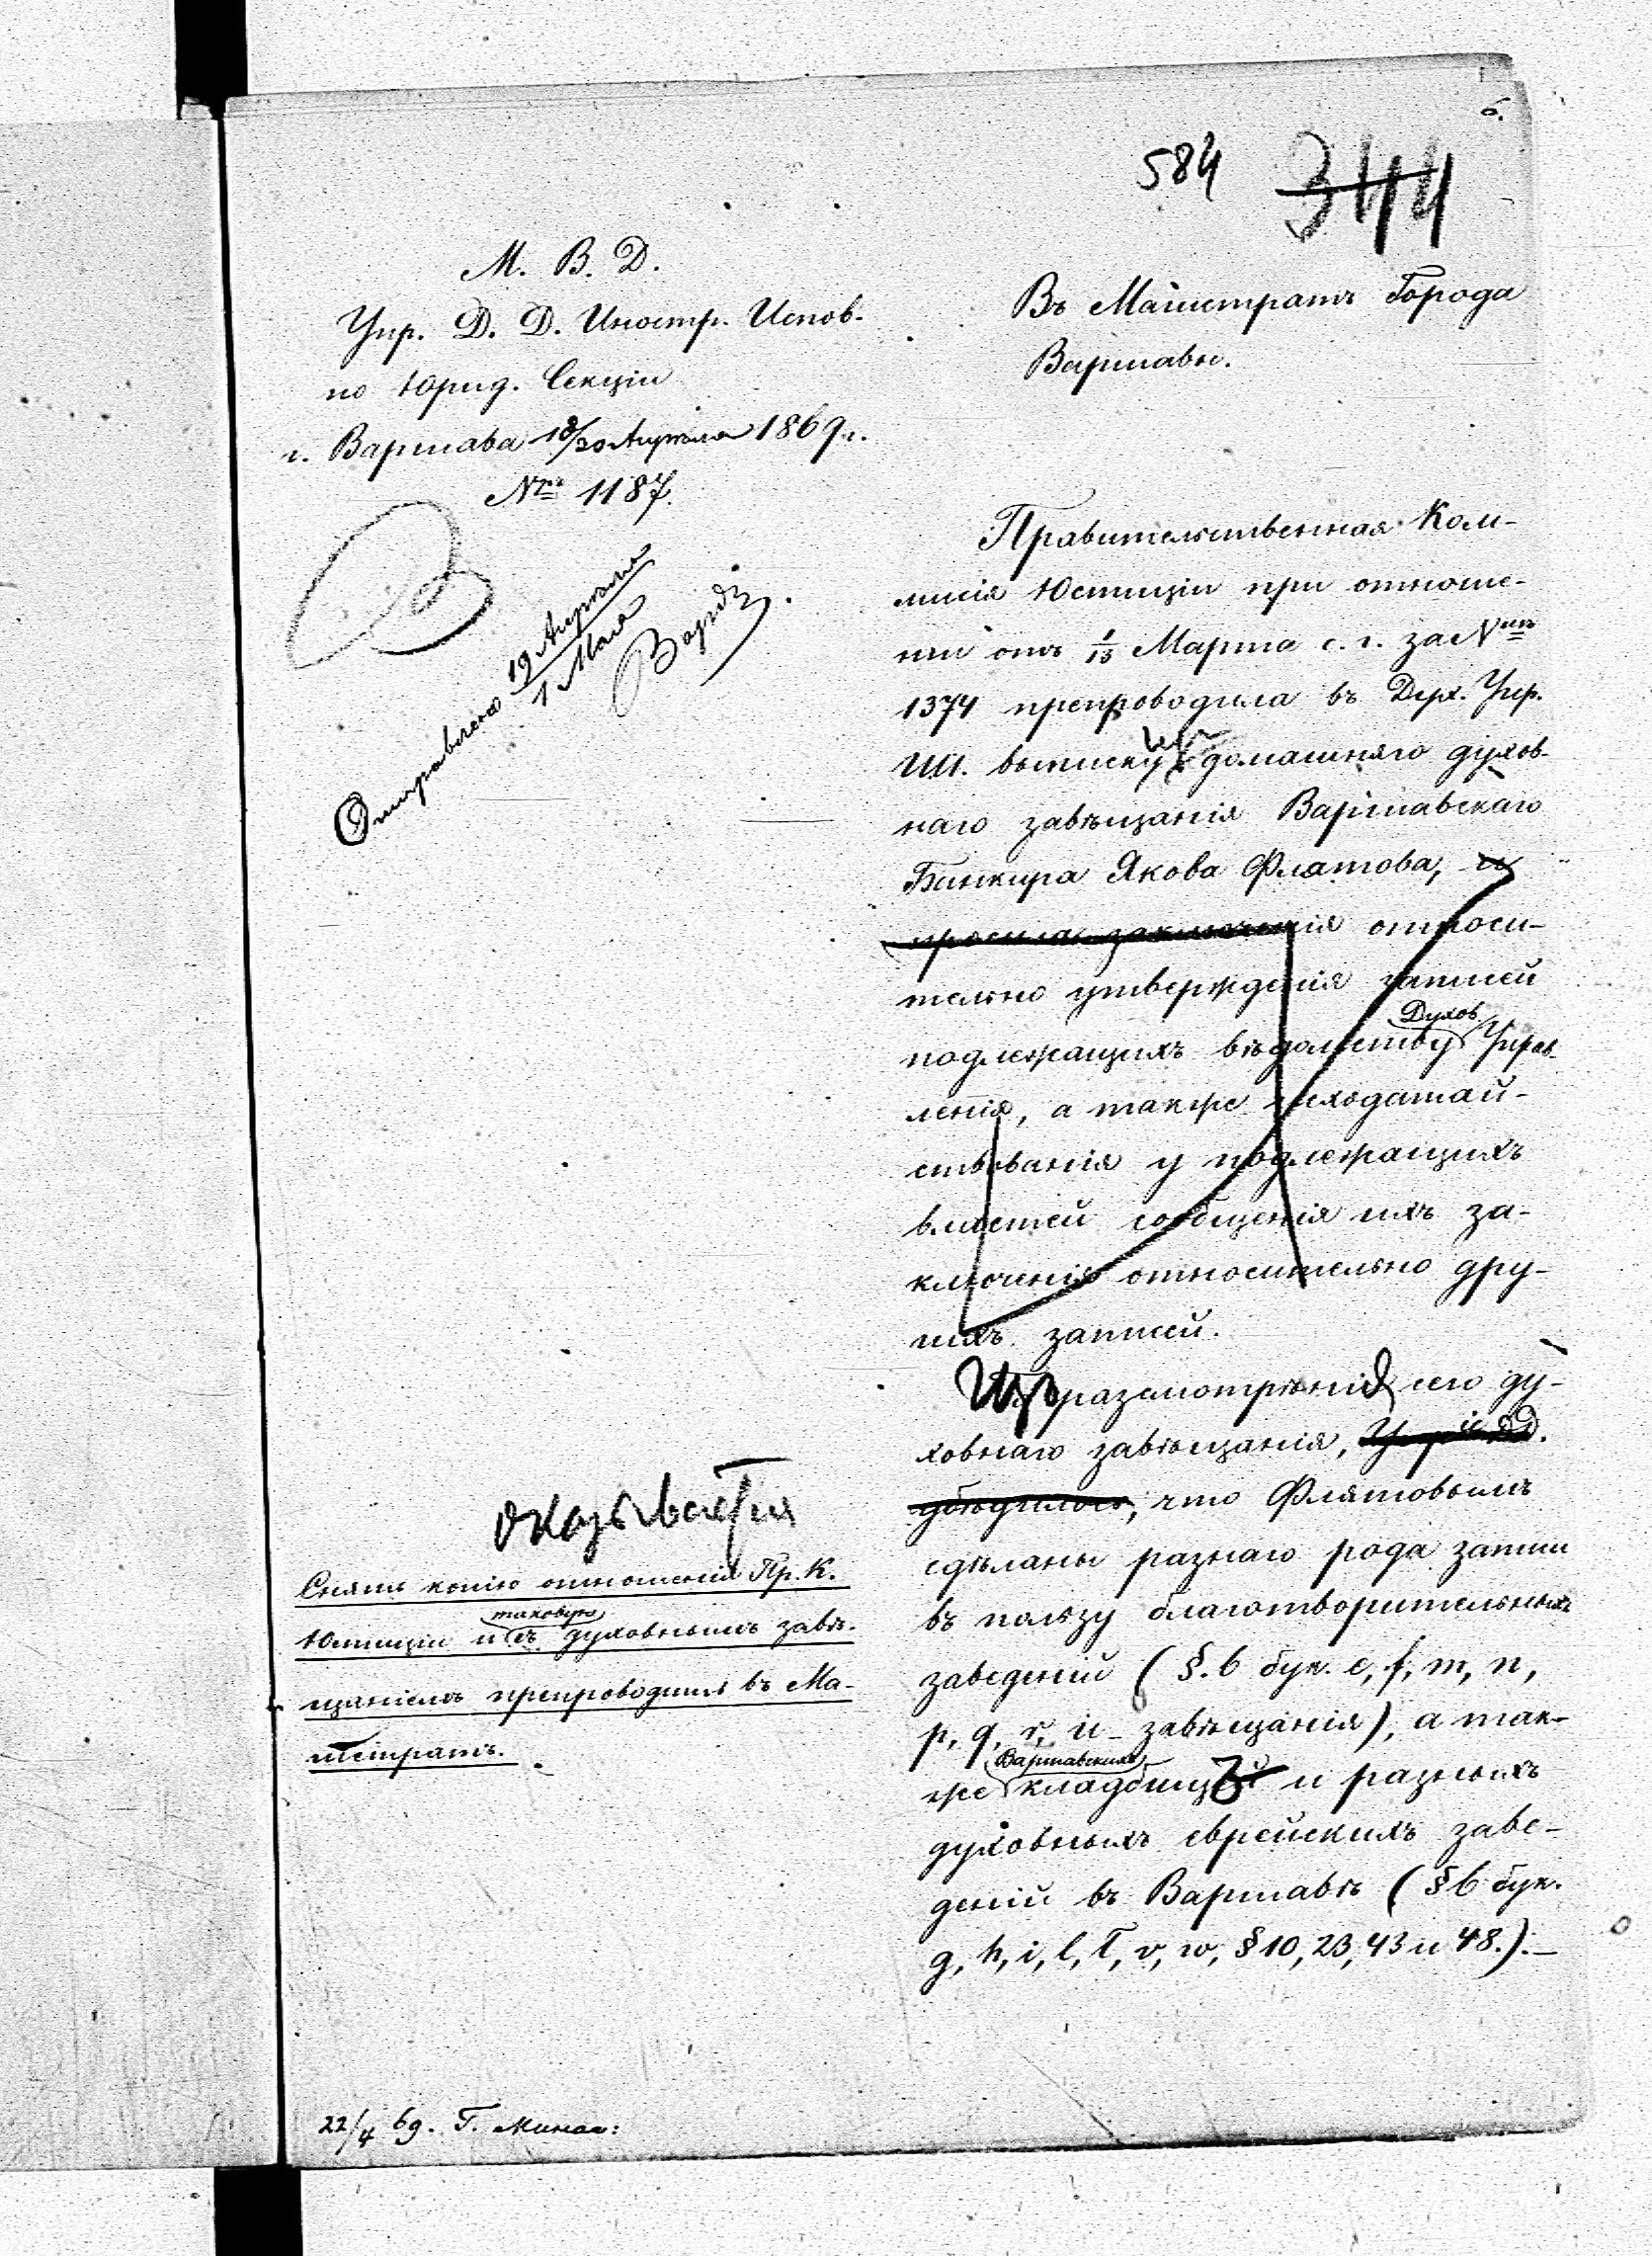 6.
584 344
М. В. Д.
Упр. Д. Д. Иностр. Испов.
по Юрид. Секціи
г. Варшава 18/30 Апрѣля 1869 г.
Nръ 1187.
Отправлено 19 Апрѣля
1 Мая
Въ Магистратъ Города
Варшавы.
Правительственная Ком-
мисія Юстиціи при отноше-
ніи отъ 1/13 Марта с. г. за Nмъ
1374 препроводила въ Дух. Упр.
ИИ. выписку изъ домашняго духов-
наго завѣщанія Варшавскаго
Банкира Якова Флатова, и
просила заключенія относи-
тельно утвержденія записей
Духов.
подлежащихъ вѣдомству Управ-
ленія, а также исходатай-
ствованія у подлежащихъ
властей сообщенія ихъ за-
ключенія относительно дру-
гихъ записей.
Изъ разсмотрѣнія сего ду-
ховнаго завѣщанія,
убѣдилось, что Флятовымъ
сдѣланы разнаго рода записи
въ пользу благотворительныхъ
заведеній (§. 6 бук. e, f, m, n,
p, q, r, u завѣщанія), а так-
Варшавскихъ
же кладбищъ и разныхъ
духовныхъ еврейскихъ заве-
деній въ Варшавѣ (§ 6 бук.
g, h, i, l, t, v, w, § 10, 23, 43 и 48.).—
оказывается
Снять копію отношенія Пр. К.
таковую
Юстиціи и съ духовнымъ завѣ-
щаніемъ препроводить въ Ма-
гистратъ.
22/4 69. Г.